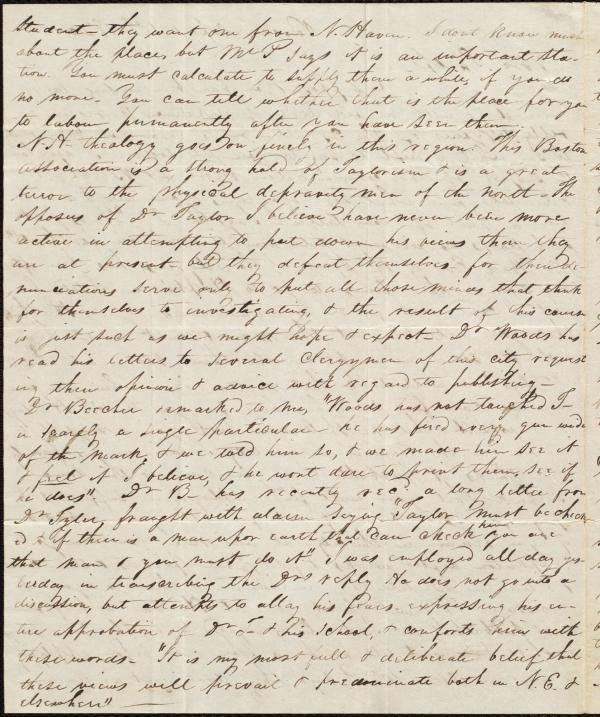 Student - they want one from N. Haven. I dont know much
about the place, but Mr P says it is an important sta-
tion. You must calculate to supply them a while, if you do
no more. You can tell whether that is the place for you
to labour permanently after you have seen them.
N.H. theology goes on finely in this region. This Boston
association is a strong hold of Taylorism & is a great
terror to the physical depravity men of the north - The
opposers of Dr Taylor I believe have never been more
active in attempting to put down his views than they
are at present - but they defeat themselves. for their de-
nunciations serve only to put all those minds that think
for themselves to investigating, & the result of this course
is just such as we might hope & expect - Dr Woods has
read his letters to several Clergymen of this city request
ing their opinion & advice with regard to publishing -
Dr Beecher remarked to me, "Woods has not touched T-
in scarely a single particular - he has fired every gun wide
of the mark, & we told him so, & we made him see it
& feel it I believe, & he wont dare to print them, see if
he does". Dr B. has recently recd a long letter from
Dr Tyler, fraught with alarm saying "Taylor must be check
d & if there is a man upon earth that can check him you are
that man & you must do it" I was employed all day yes-
terday in transcribing the Drs reply He does not go into a
discussion, but attempts to allay his fears expressing his en-
tire approbation of Dr T- & his School, & comforts him with
these words - "It is my most full & deliberate belief that
these views will prevail & predominate both in N.E. &
elsewhere" -